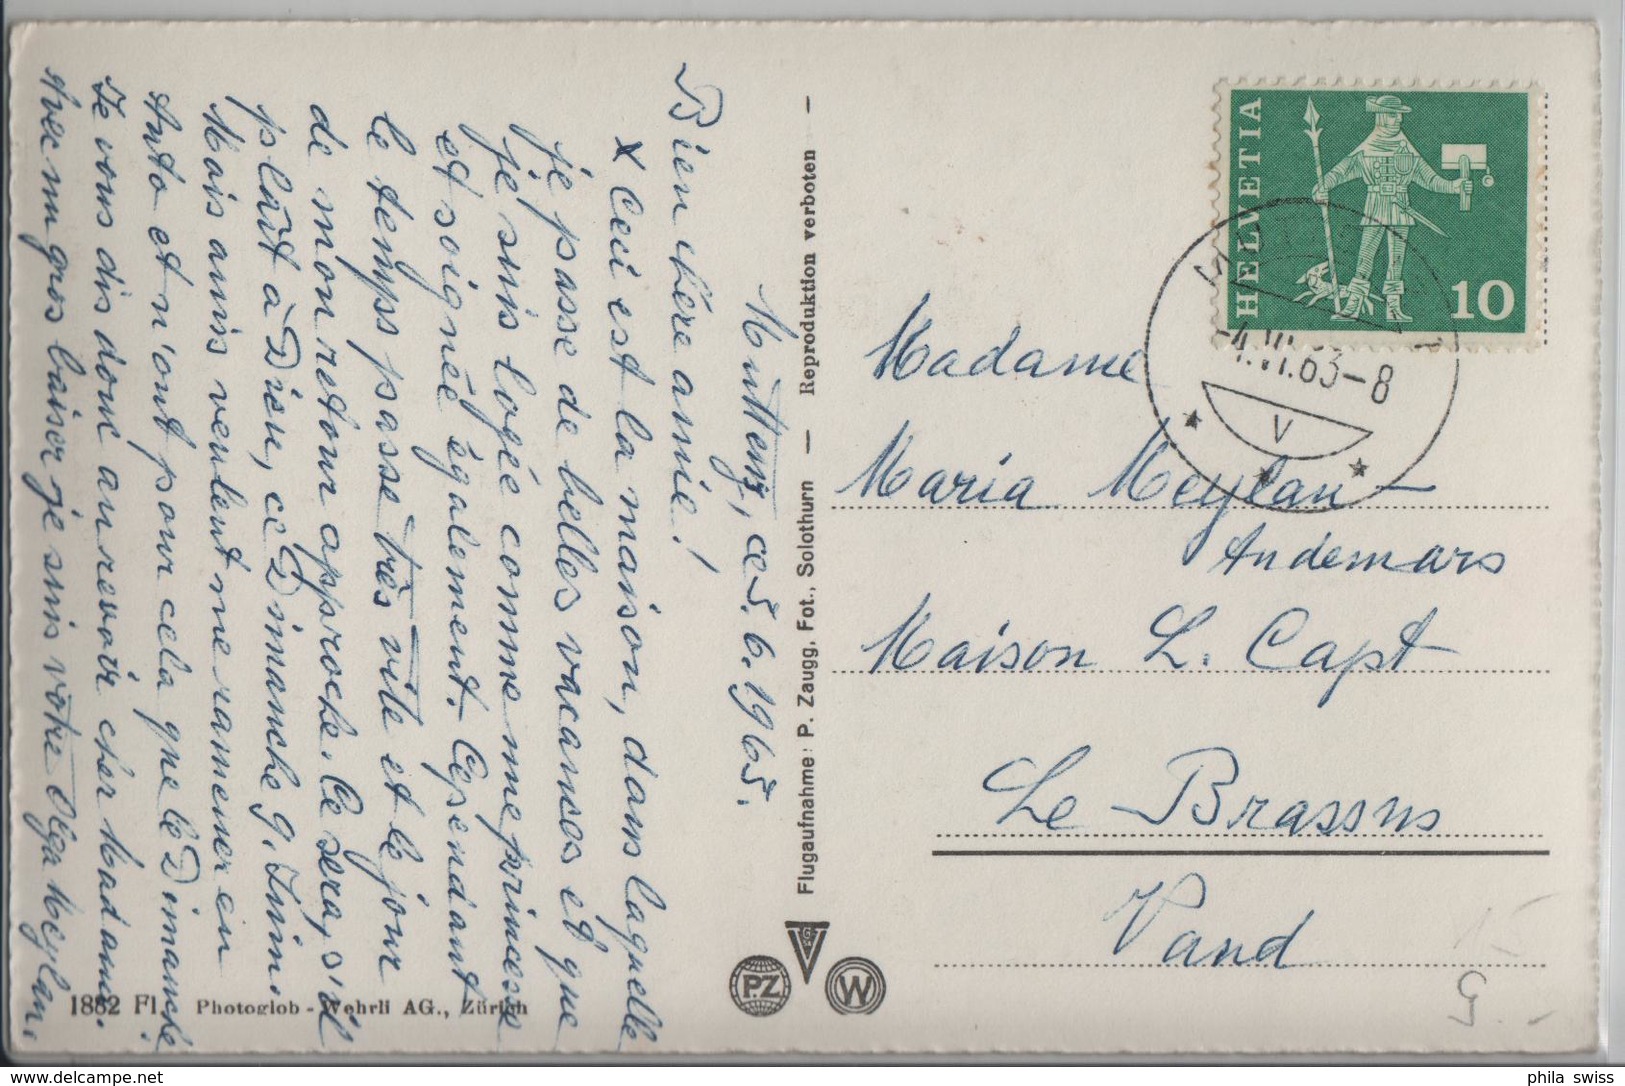 Muttenz, ce 5.6.1965.
Bien chère amie!
x Ceci est la maison, dans laquelle
je passe de belles vacances et que
je suis logée comme une princesse
et soignée également. Cependant
le temps passe très vite et le jour
de mon retour approche. Ce sera, s'il
plaît à Dieu, ce Dimanche 9. Juin.
Mais amis veulent me ramener en
Auto et n'ont pour cela que le Dimanche
Je vous dis donc au revoir cher Madame.
Avec un gros baiser je suis votre Olga Meylan.
1882 Fl. Photoglob - Wehrli AG., Zürich
Flugaufnahme: P. Zaugg, Fot., Solothurn — Reproduktion verboten —
PZ
W
HELVETIA
10
-4.VI.63-8
V
Madame
Maria Meylan —
Audemars
Maison L. Capt
Le Brassus
Vaud
phila_swiss
www.delcampe.net